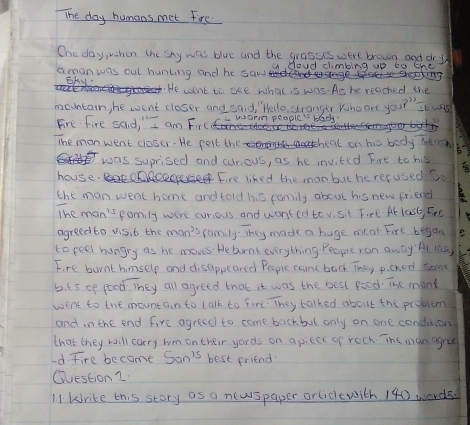 The day humans met Fire.
One day, when the sky was blue and the grasses were brown and dry
a man was out hunting and he saw a cloud climbing up to the
sky. He went to see what is was. As he reached the
mountain, he went closer and said, "Hello, stranger Who are you" It was
Fire. Fire said, "I am Fire I warm people's body.
The man went closer. He felt the heat on his body The man
was suprised and curious, as he invited Fire to his
house. Fire liked the man but he refused So
the man went home and told his family about his new friend
The man's family were curious and wanted to visit Fire At last, Fire
agreed to visit the man's family. They made a huge meal Fire began
to feel hungry as he moves. He burnt everything. People ran away. At last,
Fire burnt himself and disappeared People came back They picked some
bits of food They all agreed that it was the best food. The man
went to the mountain to talk to Fire. They talked about the problem
and in the end Fire agreed to come back but only on one condition
that they will carry him on their yards on a piece of rock The man agree
-d Fire become San's best friend.
Question 2.
1.) Write this story as a newspaper article with 140 words.